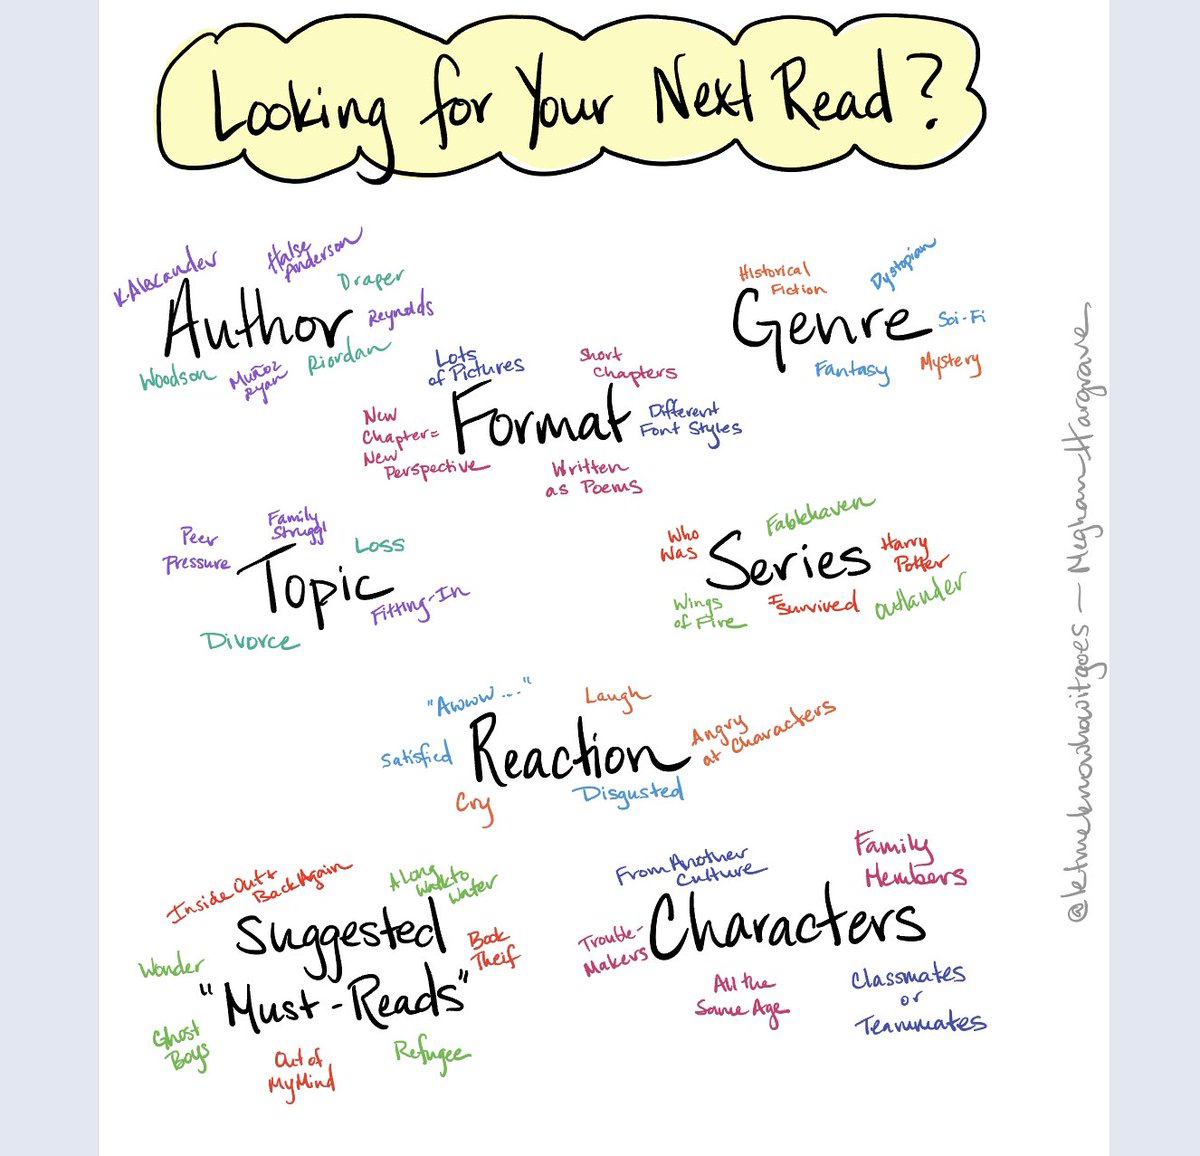 Looking for Your Next Read?
K.Alexander
Halse
Anderson
Draper
Author
Reynolds
Woodson
Muñoz
Ryan
Riordan
Historical
Fiction
Dystopian
Genre
Sci-Fi
Fantasy
Mystery
Lots
of Pictures
Short
Chapters
New
Chapter=
New
Perspective
Format
Different
Font Styles
Written
as Poems
Peer
Pressure
Family
Struggl
Loss
Topic
Fitting-In
Divorce
Who
Was
Fablehaven
Series
Harry
Potter
Wings
of Fire
I
Survived
Outlander
"Awww..."
Laugh
Satisfied
Reaction
Angry
at Characters
Cry
Disgusted
Inside Out +
Back Again
A Long
Walk to
Water
Suggested
"Must-Reads"
Book
Theif
Wonder
Ghost
Boys
Out of
My Mind
Refugee
From Another
Culture
Family
Members
Trouble-
Makers
Characters
All the
Same Age
Classmates
or
Teammates
@letmeknowhowitgoes — Meghan Hargrave